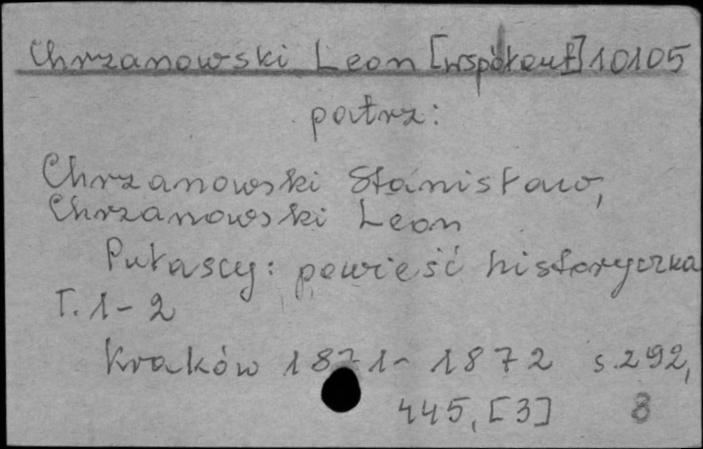 Chrzanowski Leon [współaut] 10105
patrz:
Chrzanowski Stanisław,
Chrzanowski Leon
Pułascy: powieść historyczna
T. 1-2
Kraków 1871-1872 s. 292,
445, [3] 8